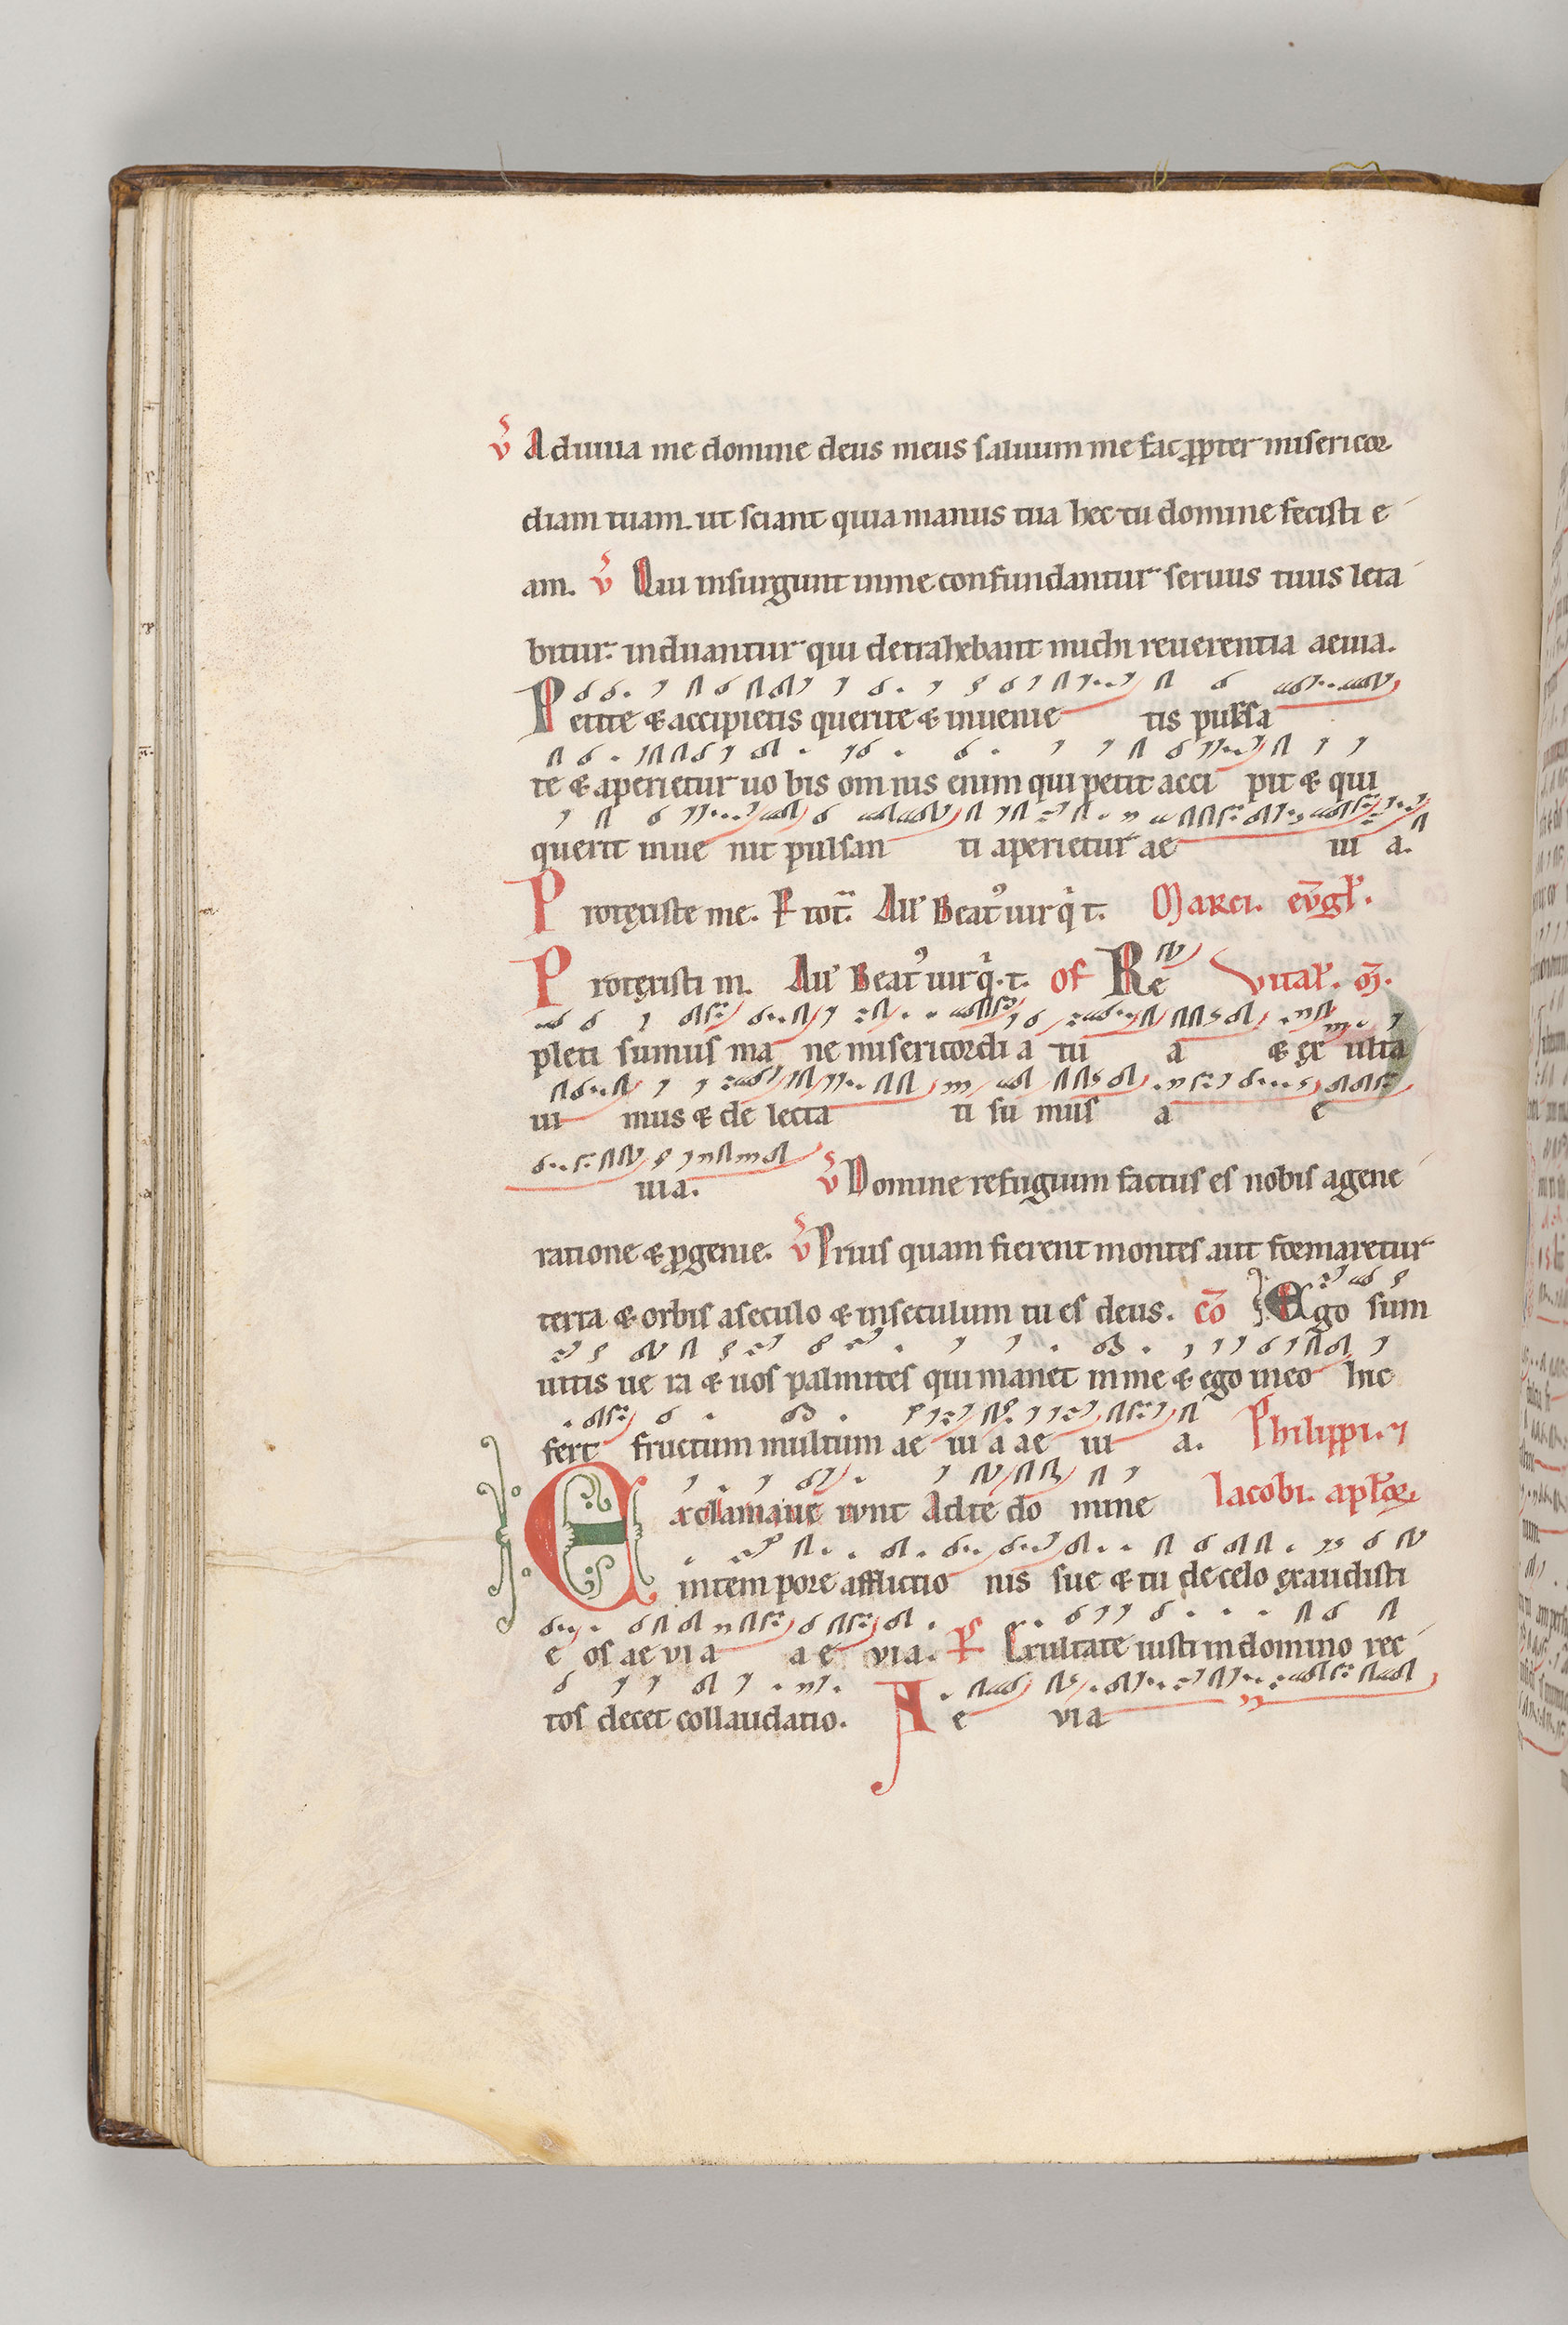 v̄ Adiuua me domine deus meus saluum me fac ꝓpter misericor
diam tuam. ut sciant quia manus tua hec tu domine fecisti e
am. v̄ Qui insurgunt in me confundantur seruus tuus leta
bitur. induantur qui detrahebant michi reuerentia aeuia.
Petite & accipietis querite & inuenie tis pulsa
te & aperietur uo bis om nis enim qui petit acci pit & qui
querit inue nit pulsan ti aperietur ae ui a.
Protęxiste me. Aƚƚ Beatꝰ uir q̇ t. Marci. ev̄gƚ.
Protęxisti m. Aƚƚ Beatꝰ uir q̇. t. of Re Vitaƚ. m̄.
pleti sumus ma ne misericordi a tu a & ex ulta
ui mus & de lecta ti su mus a e
uia. v̄ Domine refugium factus es nobis a gene
ratione & ꝓgenie. v̄ Prius quam fierent montes aut formaretur
terra & orbis a seculo & in seculum tu es deus. c̄o Ego sum
uitis ue ra & uos palmites qui manet in me & ego in eo hic
fert fructum multum ae ui a ae ui a. Philippi. ⁊
Exclamaue runt ad te do mine Iacobi. apƚoꝝ
in tem pore afflictio nis sue & tu de celo exaudisti
e os ae vi a a e vi a. P̄ Exultate iusti in domino rec
tos decet collaudatio. A e vi a